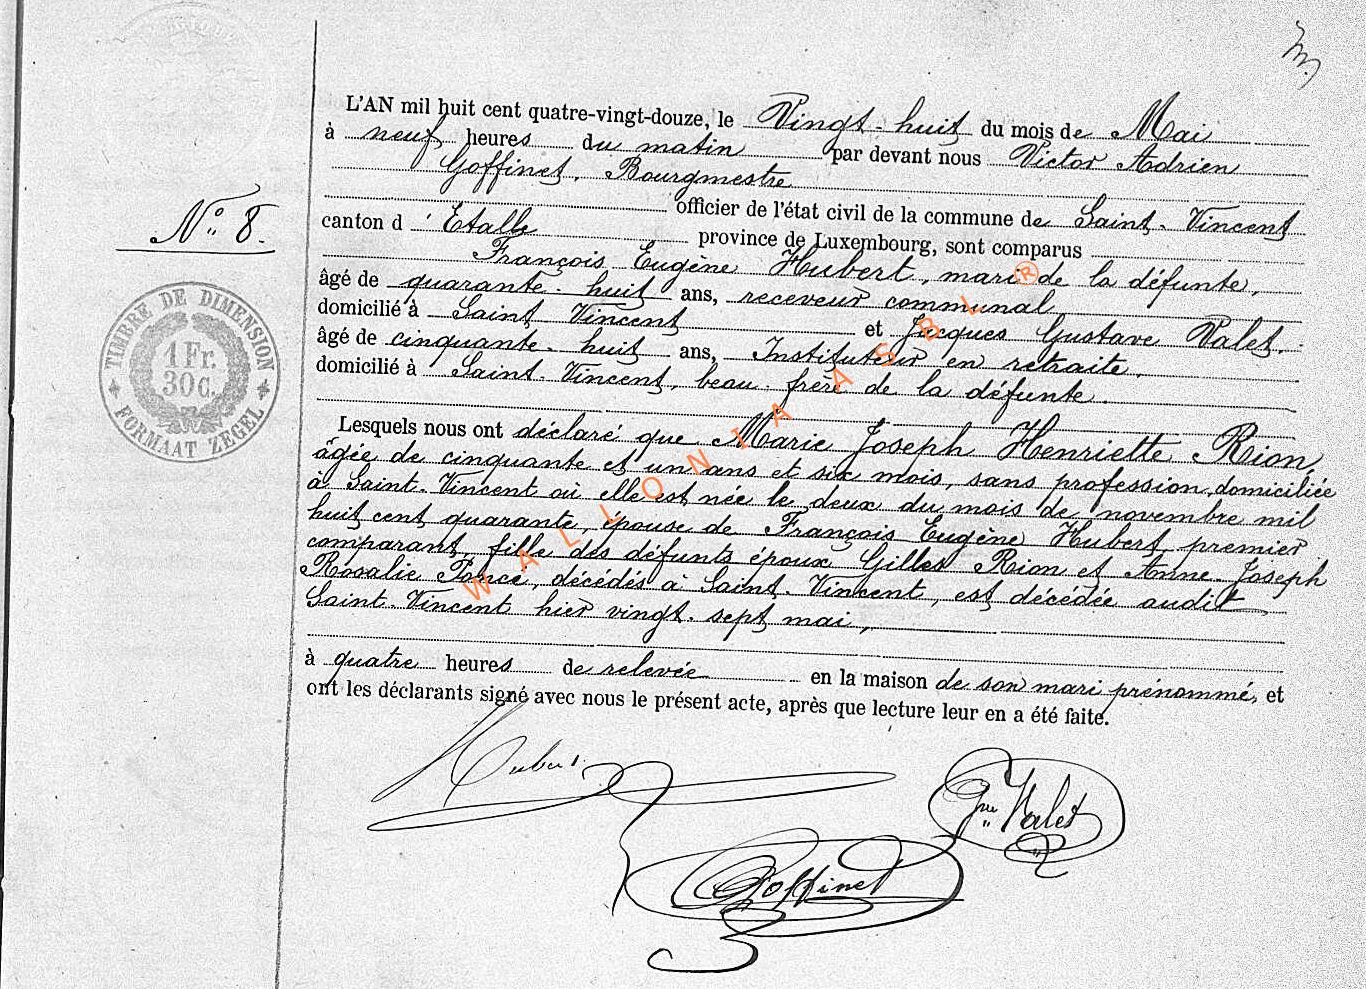 L'AN mil huit cent quatre-vingt-douze, le Vingt-huit du mois de Mai
à neuf heures du matin par devant nous Victor Adrien
Goffinet, Bourgmestre
officier de l'état civil de la commune de Saint-Vincent
canton d'Etalle province de Luxembourg, sont comparus
François Eugène Hubert, mari de la défunte,
âgé de quarante-huit ans, receveur communal
domicilié à Saint Vincent et Jacques Gustave Valet.
âgé de cinquante-huit ans, Instituteur en retraite,
domicilié à Saint-Vincent, beau-frère de la défunte.
Lesquels nous ont déclaré que Marie Joseph Henriette Rion,
âgée de cinquante et un ans et six mois, sans profession, domiciliée
à Saint-Vincent où elle est née le deux du mois de novembre mil
huit cent quarante, épouse de François Eugène Hubert, premier
comparant, fille des défunts époux Gilles Rion et Anne-Joseph
Rosalie Poncé, décédés à Saint-Vincent, est décédée audit
Saint-Vincent hier vingt-sept mai,
à quatre heures de relevée en la maison de son mari prénommé, et
ont les déclarants signé avec nous le présent acte, après que lecture leur en a été faite.
N° 8.
TIMBRE DE DIMENSION
1 Fr.
30 C.
FORMAAT ZEGEL
Hubert
Gve Valet
Goffinet
WALLONIA ASBL ®